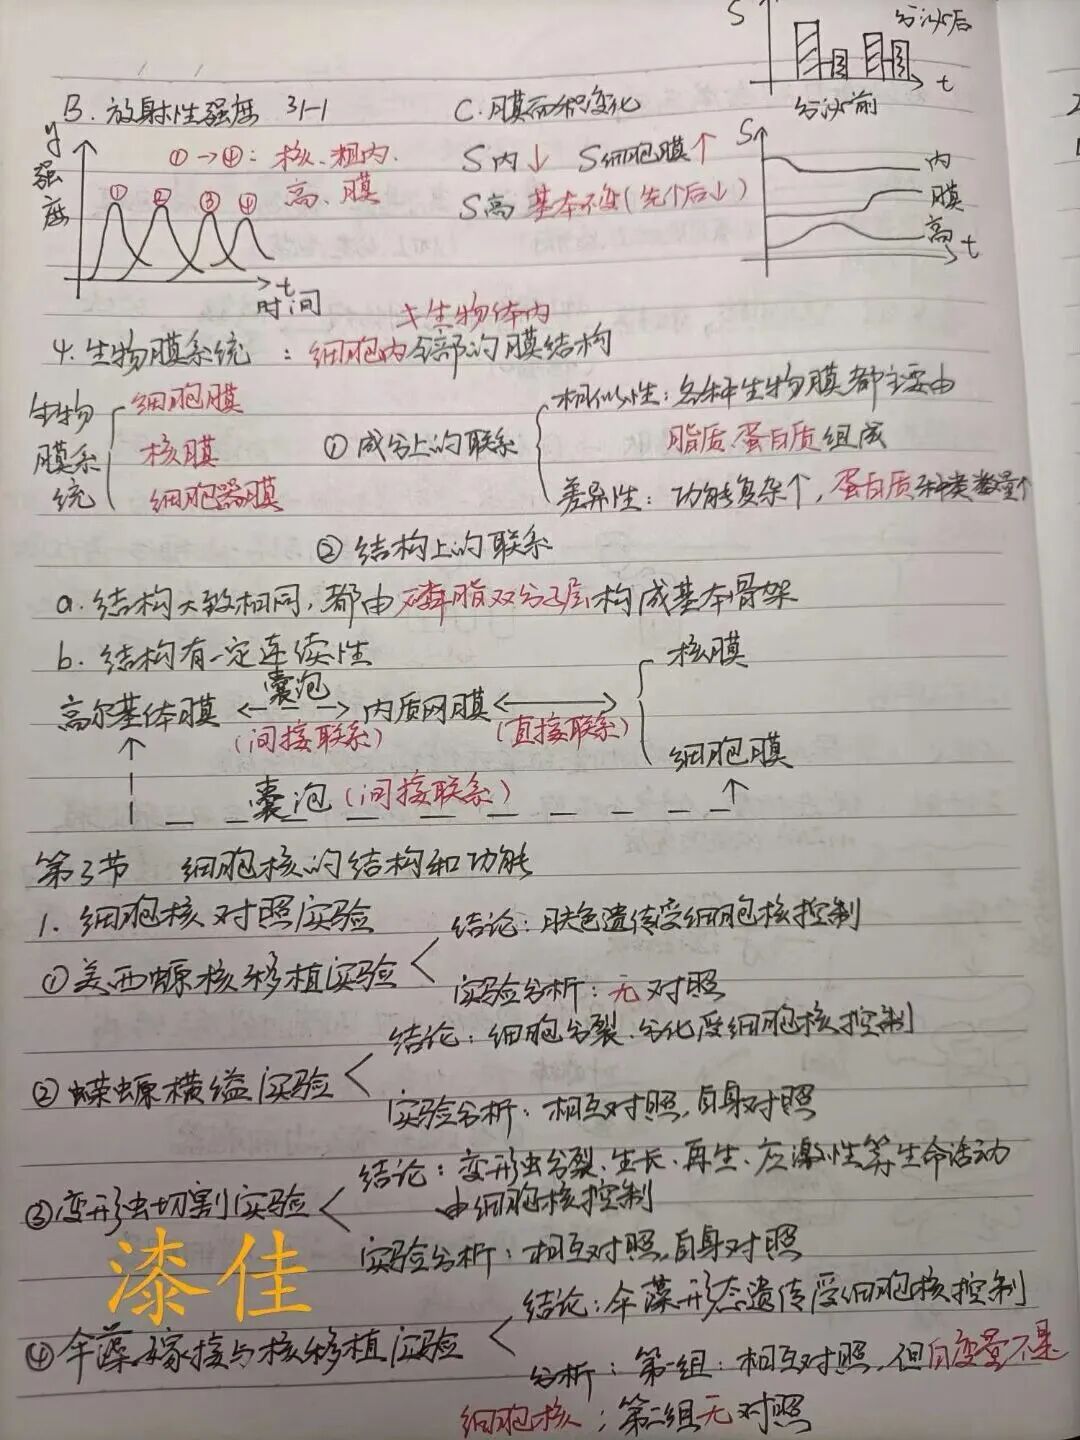 S
分泌后
t
分泌前
B. 放射性强度 31-1
C. 膜面积变化
y
强度
①→④：核、粗内、
高、膜
① ② ③ ④
t
时间
S内↓ S细胞膜↑
S高 基本不变(先个后↓)
S
内
膜
高
t
≠生物体内
4. 生物膜系统 ：细胞内全部的膜结构
生物膜系统
细胞膜
核膜
细胞器膜
① 成分上的联系
相似性：各种生物膜都主要由
脂质、蛋白质组成
差异性：功能复杂个，蛋白质种类数量个
② 结构上的联系
a. 结构大致相同，都由磷脂双分子层构成基本骨架
b. 结构有一定连续性
高尔基体膜 囊泡 (间接联系) 内质网膜 (直接联系) 核膜
细胞膜
囊泡 (间接联系)
第3节 细胞核的结构和功能
1. 细胞核对照实验
①美西螈核移植实验
结论：肤色遗传受细胞核控制
实验分析：无对照
②蝾螈横缢实验
结论：细胞分裂、分化受细胞核控制
实验分析：相互对照，自身对照
③变形虫切割实验
结论：变形虫分裂、生长、再生、应激性等生命活动
由细胞核控制
实验分析：相互对照，自身对照
漆佳
④伞藻嫁接与核移植实验
结论：伞藻形态遗传受细胞核控制
分析：第一组：相互对照，但自变量不是
细胞核；第二组无对照